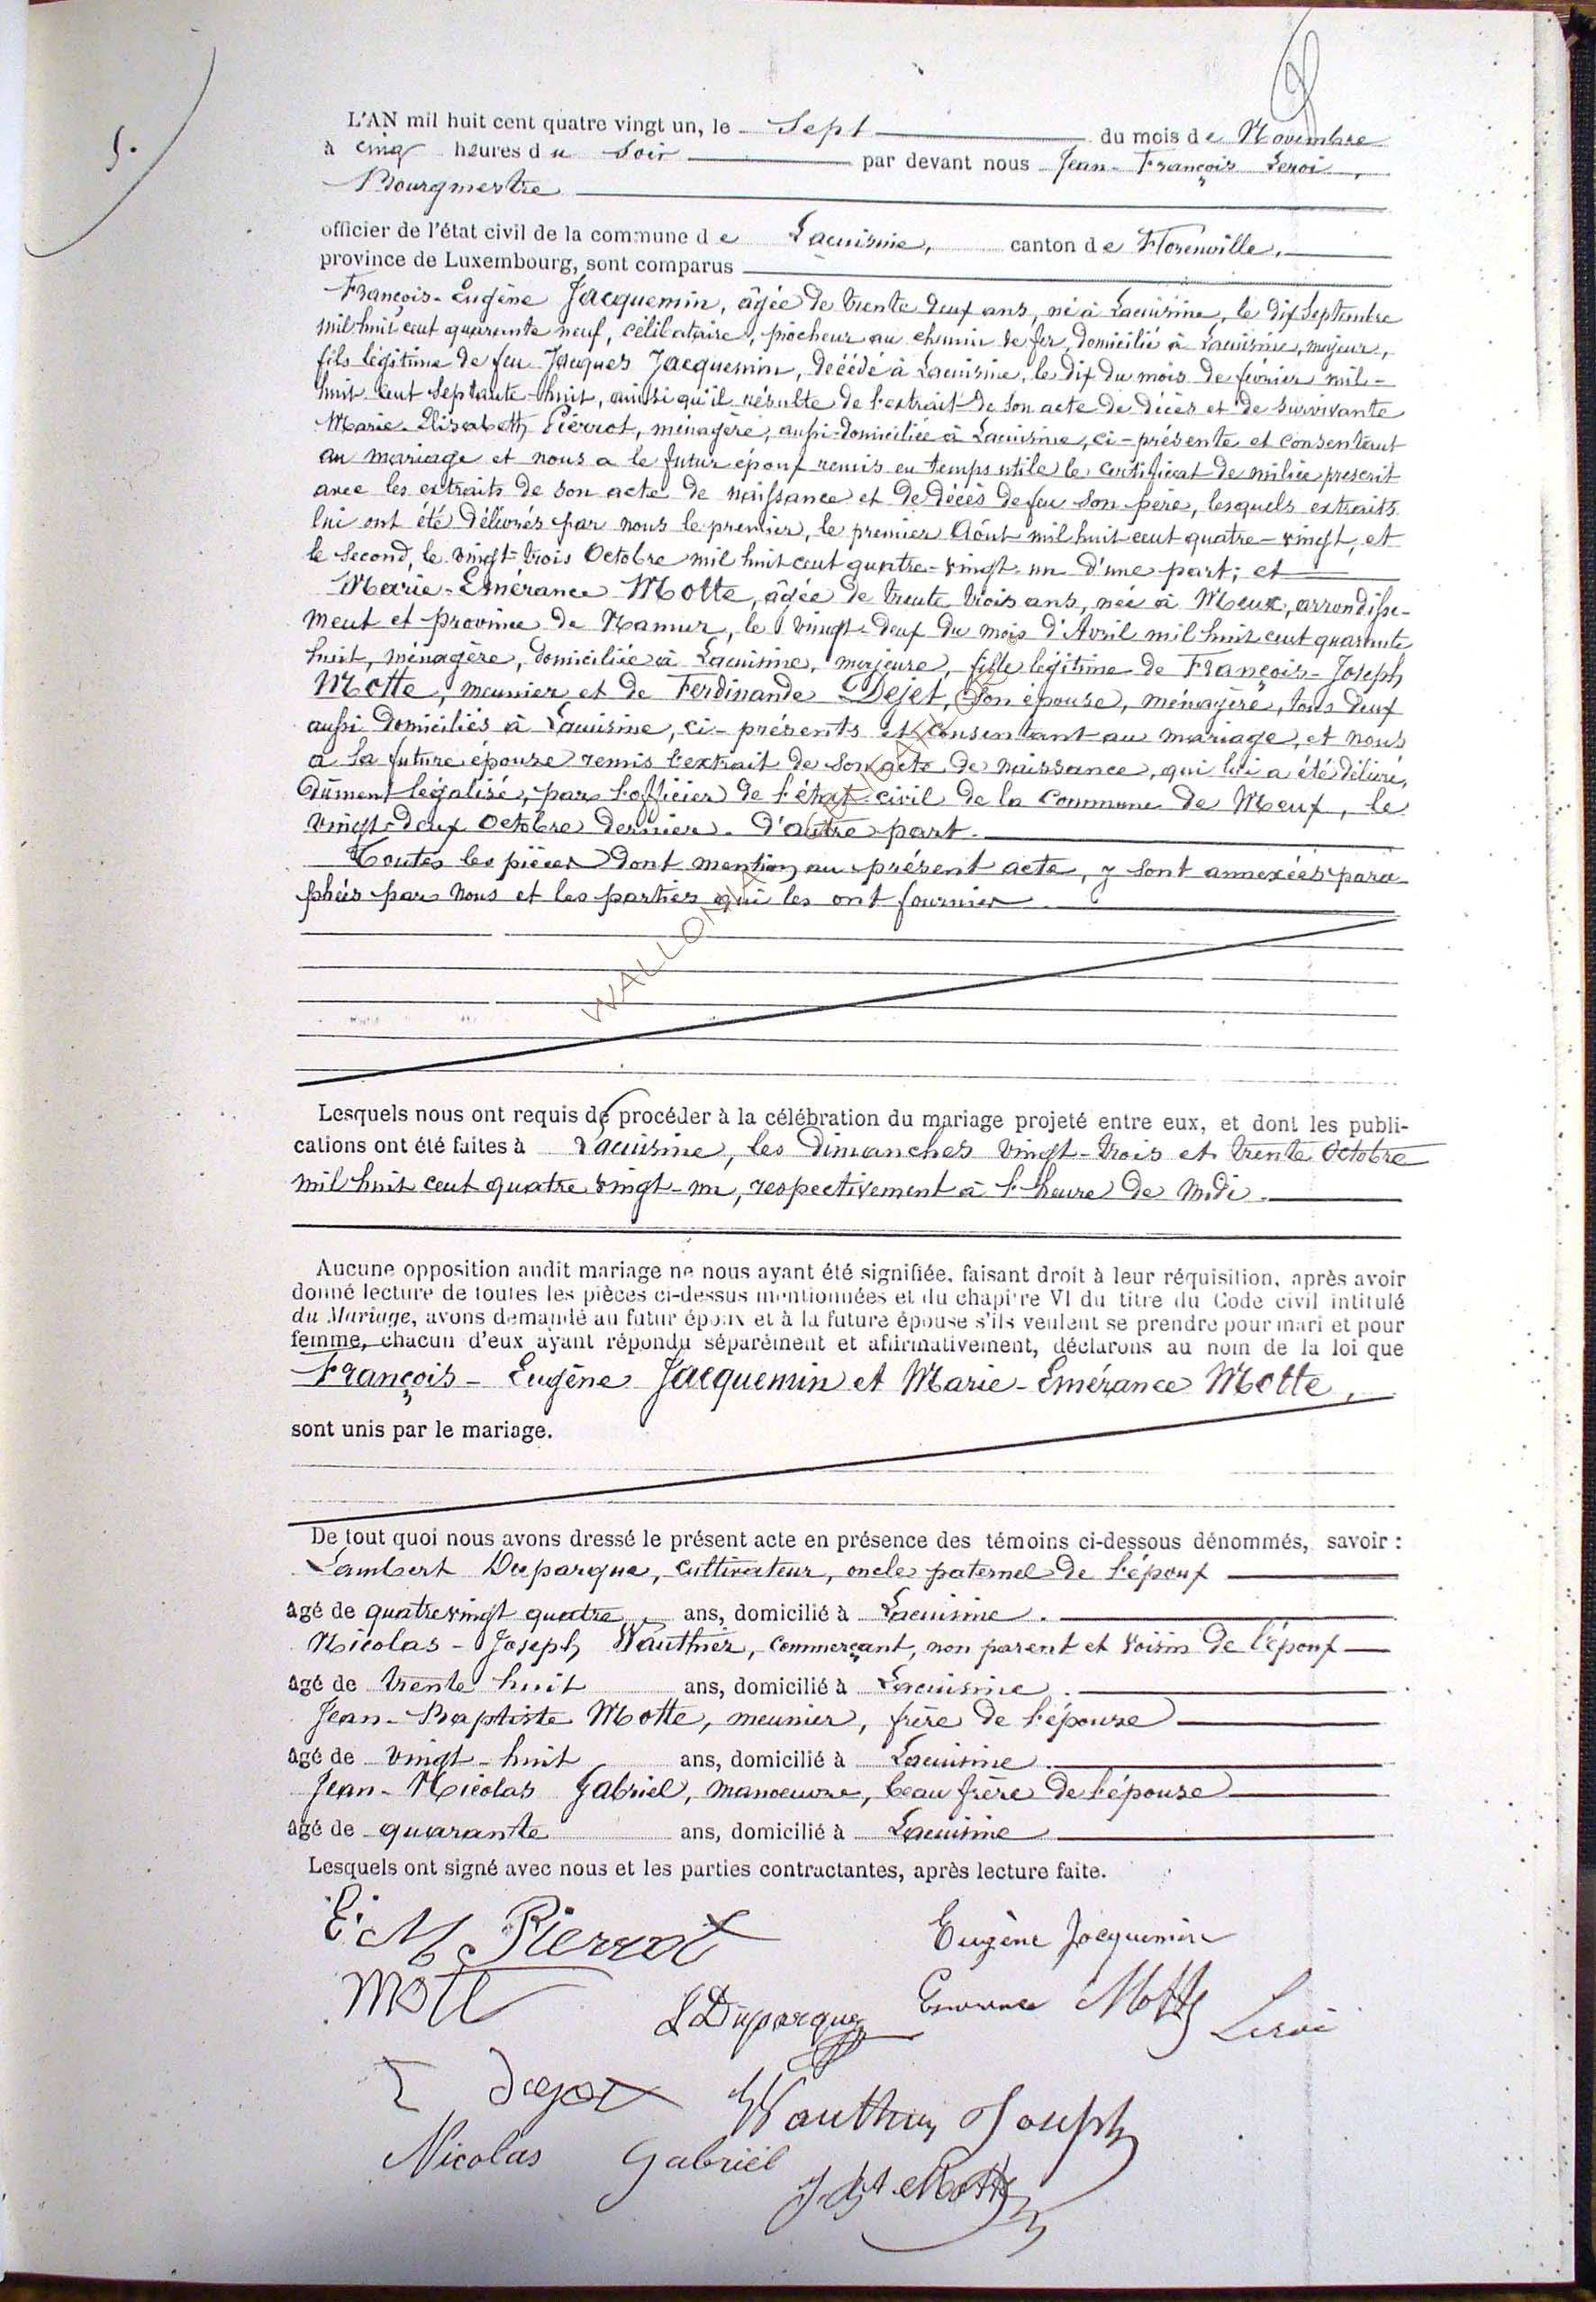 5.
L'AN mil huit cent quatre vingt un, le Sept du mois de Novembre
à cinq heures du soir par devant nous Jean-François Leroi,
Bourgmestre
officier de l'état civil de la commune de Lacuisine, canton de Florenville,
province de Luxembourg, sont comparus
François-Eugène Jacquemin, âgée de trente deux ans, né à Lacuisine, le dix Septembre
mil huit cent quarante neuf, célibataire, piocheur au chemin de fer, domicilié à Lacuisine, majeur,
fils légitime de feu Jacques Jacquemin, décédé à Lacuisine, le dix du mois de février mil-
huit cent septante-huit, ainsi qu'il résulte de l'extrait de son acte de décès et de survivante
Marie-Elisabeth Pierrot, ménagère, aussi domiciliée à Lacuisine, ci-présente et consentant
au mariage et nous a le futur époux remis en temps utile le certificat de milice prescrit
avec les extraits de son acte de naissance et de décès de feu son père, lesquels extraits
lui ont été délivrés par nous le premier, le premier Août mil huit cent quatre-vingt, et
le second, le vingt-trois Octobre mil huit cent quatre-vingt-un d'une part; et
Marie-Emérance Motte, âgée de trente trois ans, née à Meux, arrondisse-
ment et province de Namur, le vingt-deux du mois d'Avril mil huit cent quarante
huit, ménagère, domiciliée à Lacuisine, majeure, fille légitime de François-Joseph
Motte, meunier et de Ferdinande Dejet, son épouse, ménagère, tous deux
aussi domiciliés à Lacuisine, ci-présents et consentant au mariage, et nous
a la future épouse remis l'extrait de son acte de naissance, qui lui a été délivré,
dûment légalisé, par l'officier de l'état civil de la Commune de Meux, le
vingt-deux Octobre dernier. D'autre part.
Toutes les pièces dont mention au présent acte, y sont annexées para
phées par nous et les parties qui les ont fournies.
WALLONIA
Lesquels nous ont requis de procéder à la célébration du mariage projeté entre eux, et dont les publi-
cations ont été faites à Lacuisine, les dimanches vingt-trois et trente Octobre
mil huit cent quatre vingt-un, respectivement à l'heure de Midi.
Aucune opposition audit mariage ne nous ayant été signifiée, faisant droit à leur réquisition, après avoir
donné lecture de toutes les pièces ci-dessus mentionnées et du chapitre VI du titre du Code civil intitulé
du Mariage, avons demandé au futur époux et à la future épouse s'ils veulent se prendre pour mari et pour
femme, chacun d'eux ayant répondu séparément et affirmativement, déclarons au nom de la loi que
François-Eugène Jacquemin et Marie-Emérance Motte,
sont unis par le mariage.
De tout quoi nous avons dressé le présent acte en présence des témoins ci-dessous dénommés, savoir :
Lambert Duparque, cultivateur, oncle paternel de l'époux
âgé de quatre vingt quatre ans, domicilié à Lacuisine.
Nicolas-Joseph Wauthier, commerçant, non parent et voisin de l'époux
âgé de trente huit ans, domicilié à Lacuisine.
Jean-Baptiste Motte, meunier, frère de l'épouse
âgé de vingt-huit ans, domicilié à Lacuisine.
Jean-Nicolas Gabriel, manoeuvre, beau frère de l'épouse
âgé de quarante ans, domicilié à Lacuisine
Lesquels ont signé avec nous et les parties contractantes, après lecture faite.
E. M. Pierrot Eugène Jacquemin
Motte L Duparque Emerance Motte Leroi
Wauthier Joseph
Nicolas Gabriel J Bt Motte